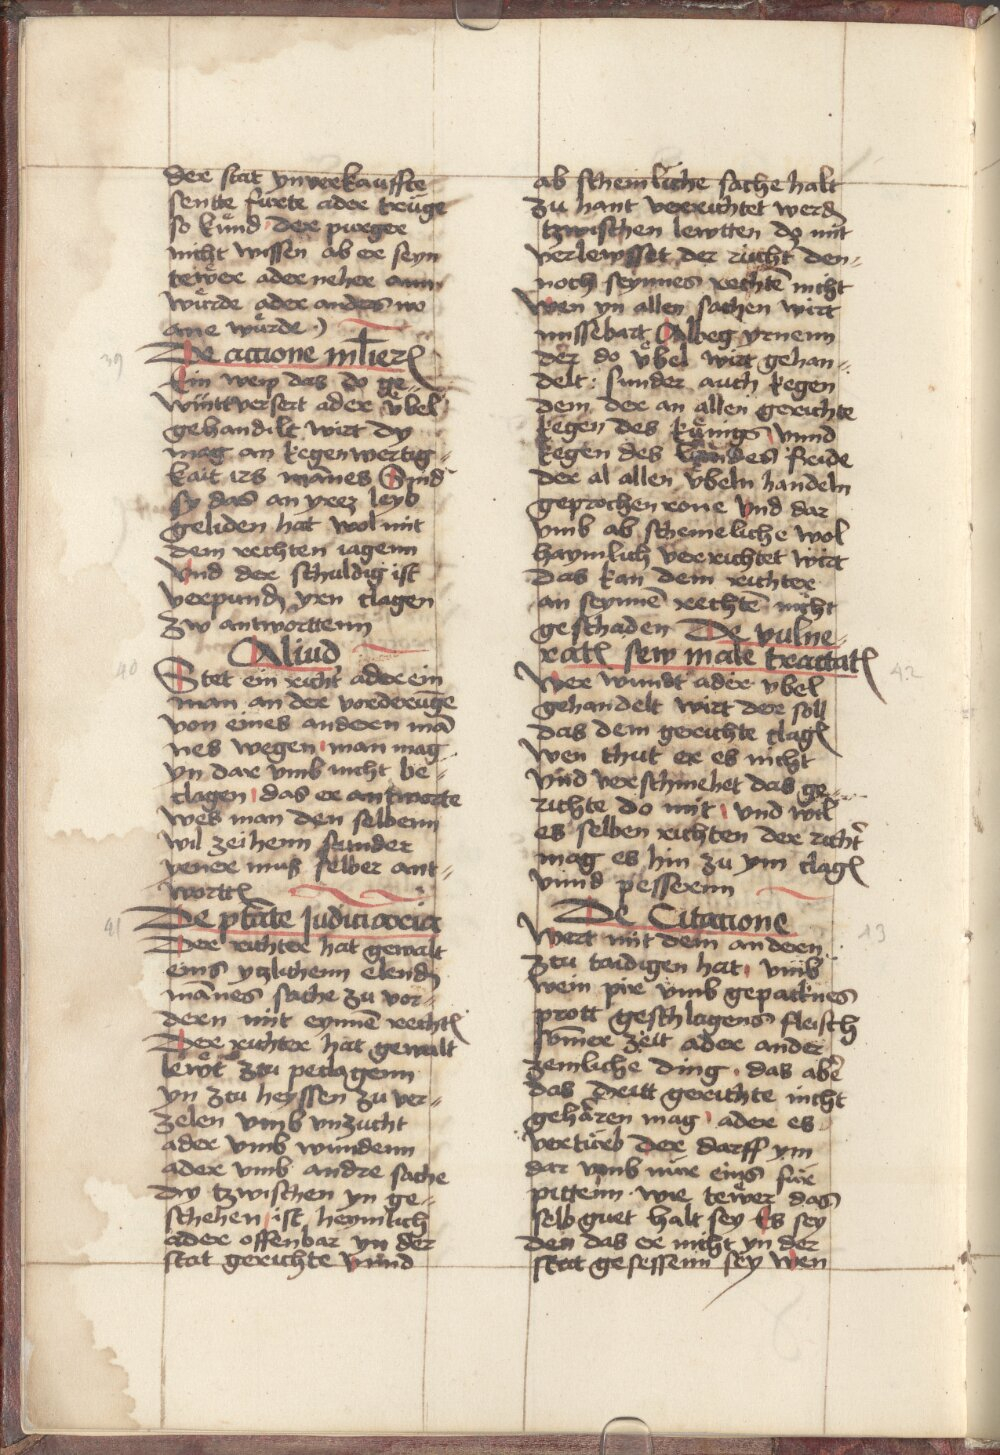 der stat ynverkauffte
sentte furte ader truge
so kund der purger
nicht wissen ab er seyn
tewer ader neher ann
wurde ader anders wo
ane wurde
39
De actione mulier
Ein weip das do ge-
wuntt versert ader ubel
gehandilt wirt dy
mag an kegenwertig-
kait irs mannes Und
sy das an yrez leyb
geliden hat wol mit
dem rechten iagenn
Vnd der schuldig ist
verpund yrn clagen
zw antworttenn
40
Aliud
Stet ein richt ader ein
man an der vorderunge
von eines andern man
nes wegen man mag
yn dar vmb nicht be-
clagen das er antworte
wes man den selbenn
wil zeihenn sunder
yener mus selber ant-
wortt
41
De ptate Judiciaria
Der richter hat gewalt
eins ytzlichenn elend
mannes sache zu vor-
dern mit eynne recht
Der richter hat gewalt
lewt ztu peclagenn
yn ztu heyssen zu ver-
zelen vmb vnzucht
ader vmb wundenn
ader vmb andre sache
dy tzwischen yn ge-
schehen ist heymlich
ader offenbar yn der
stat gerichte vnnd
ab schemliche sache halt
zu hant verrichtet werd
tzwischen lewtten do mit
verleysset der richt den-
noch seynnes rechte nicht
Wen yn allen sachen wirt
missebart
der do vbel wirt gehan-
delt sunder auch kegen
dem der an allen gerichte
kegen des kunigs vnnd
kegen des landes freide
der al allen vbeln handeln
geprochen vnd dar
vmb ab schemeliche wol
haymlich verrichtet wirt
das kan dem richter
an seynne rechte nicht
geschaden De vulne-
rat sew male tractat
42
Wer wundt ader vbel
gehandelt wirt der soll
das dem gerichte clag
wen thut er es nicht
vnd verschmehet das ge-
richte do mit vnd wil
es selben richten der richt
mag es hin zu ym clag
vnnd pesserenn
De Citacione
13
Wert mit dem andern
ztu taidigen hat vmb
wein pir vmb gepacknes
prott geschlagens fleisch
zeit ader ander
zemliche ding das abe
das dritt gerichte nicht
gehären mag ader es
der darff ym
dar vmb nur eins für
pittenn wie tewer das
selb guet halt sey Es sey
den das er nicht yn der
stat gesessenn sey wen